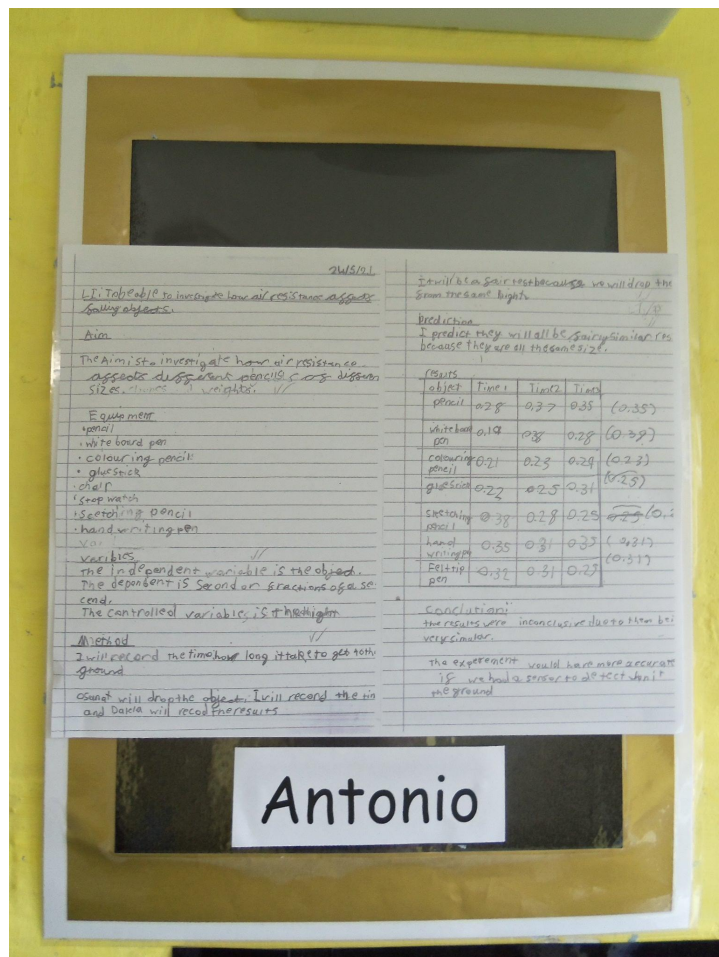 24/5/21
LI: To be able to investigate how air resistance affects
falling objects.
Aim
The Aim is to investigate how air resistance
affects different pencils of differen
sizes. weights.
Equipment
• pencil
• white board pen
• colouring pencil
• gluestick
• chair
• stop watch
• scetching pencil
• hand writing pen
varibles
the independent variable is the object.
The dependent is second or fractions of a se
cend.
The controlled variable, is the hight
Method
I will record the time how long it take to get to the
ground
will drop the object. I will record the tim
and will recod the results
It will be a fair test because we will drop the
from the same hight.
prediction
I predict they will all be fairly similar
because they are all the same size.
results
object Time 1 Time2 Time
pencil 0.28 0.37 0.35 (0.35)
whiteboard
pen 0.28
colouring
pencil 0.21 0.23 0.28 (0.23)
gluestick 0.22 0.25 0.31 (0.25)
sketching
pencil 0.38 0.28 0.25
hand
writing pen 0.35 0.31 0.33 (0.31)
Felt tip
pen 0.32 0.31 0.29 (0.31)
Conclution:
the results were inconclusive due to them bei
very simular.
The experement would have more accurate
if we had a sensor to detect when it
the ground
Antonio